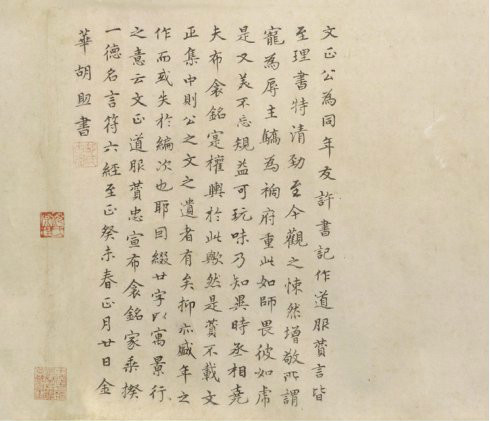 文正公為同年友許書記作道服贊言皆
至理書特清勁至今觀之悚然增敬所謂
寵為辱主驕為禍府重此如師畏彼如虎
是又美不忘規益可玩味乃知異時丞相堯
夫布衾銘寔權輿於此歟然是贊不載文
正集中則公之文之遺者有矣抑亦盛年之
作而或失於編次也耶因綴廿字以寓景行
之意云文正道服贊忠宣布衾銘家乘揆
一德名言符六經至正癸未春正月廿日金
華胡助書